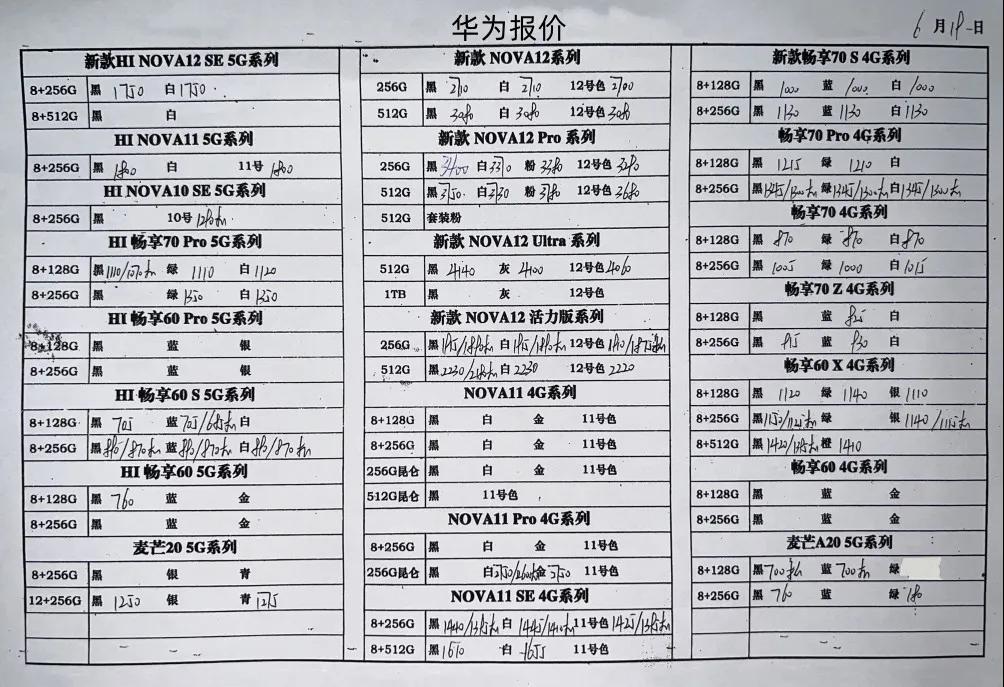 华为报价
6月19日
新款HI NOVA12 SE 5G系列
8+256G 黑 1750 白 1750
8+512G 黑 白
HI NOVA11 5G系列
8+256G 黑 1800 白 11号 1800
HI NOVA10 SE 5G系列
8+256G 黑 10号
HI 畅享70 Pro 5G系列
8+128G 黑 1110/1070 绿 1110 白 1120
8+256G 黑 绿 1350 白 1350
HI 畅享60 Pro 5G系列
8+128G 黑 蓝 银
8+256G 黑 蓝 银
HI 畅享60 S 5G系列
8+128G 黑 705 蓝 705/685 白
8+256G 黑 蓝 白
HI 畅享60 5G系列
8+128G 黑 760 蓝 金
8+256G 黑 蓝 金
麦芒20 5G系列
8+256G 黑 银 青
12+256G 黑 1250 银 青 1275
新款 NOVA12系列
256G 黑 2710 白 2710 12号色 2700
512G 黑 3080 白 3080 12号色 3080
新款 NOVA12 Pro 系列
256G 黑 3400 白 3310 粉 3380 12号色
512G 黑 3750 白 3730 粉 3780 12号色 3680
512G 套装粉
新款 NOVA12 Ultra 系列
512G 黑 4140 灰 4100 12号色 4060
1TB 黑 灰 12号色
新款 NOVA12 活力版系列
256G 黑 白 12号色
512G 黑 2230 白 2230 12号色 2220
NOVA11 4G系列
8+128G 黑 白 金 11号色
8+256G 黑 白 金 11号色
256G昆仑 黑 白 金 11号色
512G昆仑 黑 11号色
NOVA11 Pro 4G系列
8+256G 黑 白 金 11号色
256G昆仑 黑 白 金 11号色
NOVA11 SE 4G系列
8+256G 黑 白 11号色
8+512G 黑 1610 白 1655 11号色
新款畅享70 S 4G系列
8+128G 黑 1000 蓝 1000 白 1000
8+256G 黑 1130 蓝 1130 白 1130
畅享70 Pro 4G系列
8+128G 黑 1215 绿 1210 白
8+256G 黑 1345/1300 绿 1345/1300 白 1345/1300
畅享70 4G系列
8+128G 黑 870 绿 870 白 870
8+256G 黑 1005 绿 1000 白 1015
畅享70 Z 4G系列
8+128G 黑 蓝 825
8+256G 黑 915 蓝 930
畅享60 X 4G系列
8+128G 黑 1120 绿 1140 银 1110
8+256G 黑 1150/1125 绿 银 1140/1115
8+512G 黑 1420 橙 1410
畅享60 4G系列
8+128G 黑 蓝 金
8+256G 黑 蓝 金
麦芒A20 5G系列
8+128G 黑 700 蓝 700 绿
8+256G 黑 760 蓝 绿 780